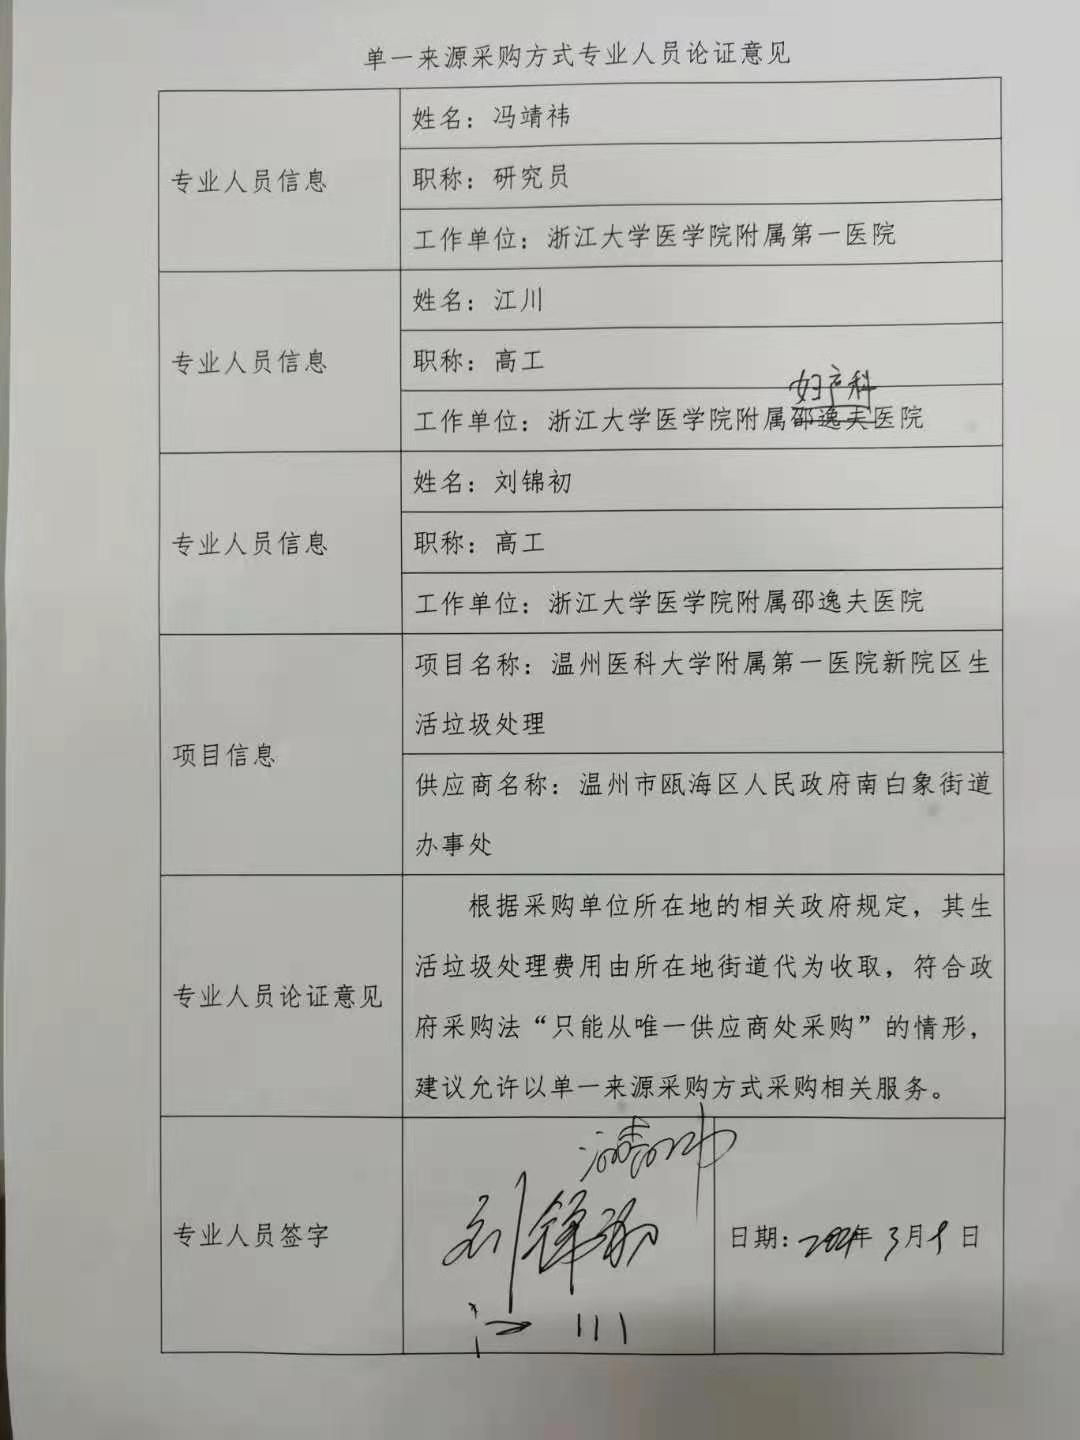 单一来源采购方式专业人员论证意见
专业人员信息
姓名：冯靖祎
职称：研究员
工作单位：浙江大学医学院附属第一医院
专业人员信息
姓名：江川
职称：高工
妇产科
工作单位：浙江大学医学院附属邵逸夫医院
专业人员信息
姓名：刘锦初
职称：高工
工作单位：浙江大学医学院附属邵逸夫医院
项目信息
项目名称：温州医科大学附属第一医院新院区生
活垃圾处理
供应商名称：温州市瓯海区人民政府南白象街道
办事处
专业人员论证意见
根据采购单位所在地的相关政府规定，其生
活垃圾处理费用由所在地街道代为收取，符合政
府采购法“只能从唯一供应商处采购”的情形，
建议允许以单一来源采购方式采购相关服务。
专业人员签字
冯靖祎
刘锦初
江川
日期：年3月9日